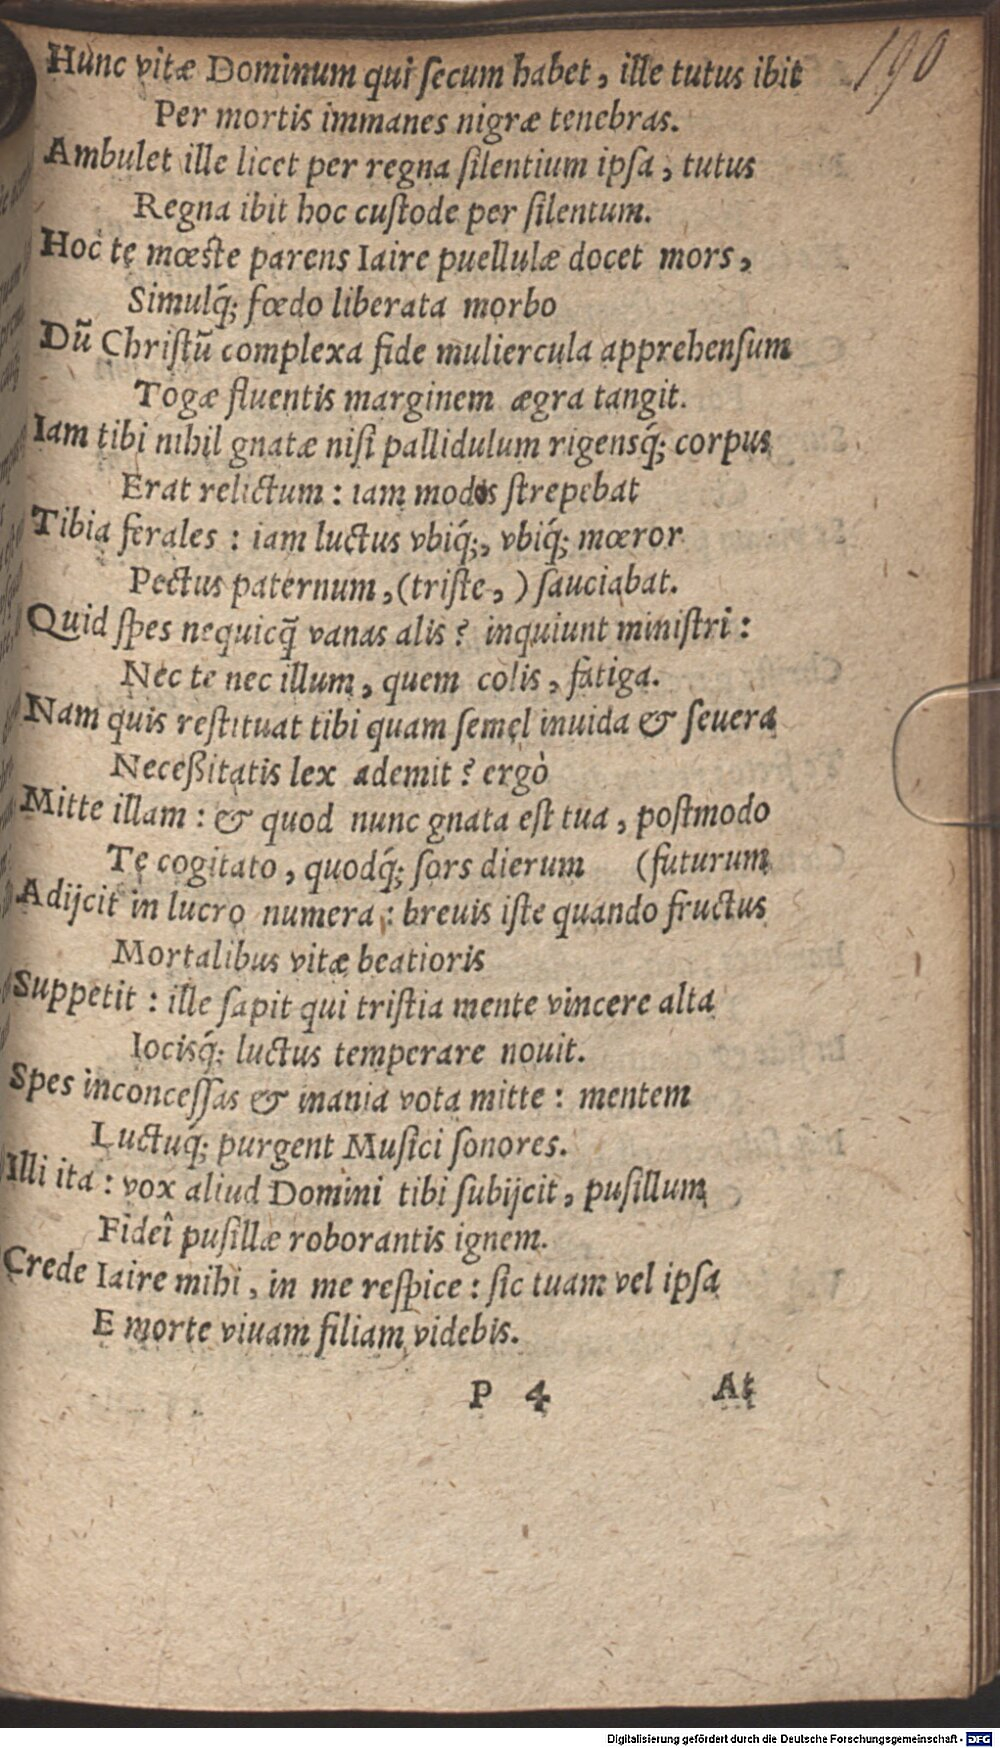 190
Hunc vitæ Dominum qui ſecum habet, ille tutus ibit
Per mortis immanes nigræ tenebras.
Ambulet ille licet per regna ſilentium ipſa, tutus
Regna ibit hoc cuſtode per ſilentum.
Hoc te mœſte parens Iaire puellulæ docet mors,
Simulq́; fœdo liberata morbo
Dũ Chriſtũ complexa fide muliercula apprehenſum
Togæ fluentis marginem ægra tangit.
Iam tibi nihil gnatæ niſi pallidulum rigensq́; corpus
Erat relictum : iam modos ſtrepebat
Tibia ferales : iam luctus vbiq́;, vbiq́; mœror
Pectus paternum, (triſte, ) ſauciabat.
Quid ſpes nequicq̃ vanas alis ? inquiunt miniſtri :
Nec te nec illum, quem colis, fatiga.
Nam quis reſtituat tibi quam ſemel inuida & ſeuera
Neceßitatis lex ademit ? ergò
Mitte illam : & quod nunc gnata eſt tua, poſtmodo
Te cogitato, quodq́; ſors dierum (futurum
Adijcit in lucro numera : breuis iſte quando fructus
Mortalibus vitæ beatioris
Suppetit : ille ſapit qui triſtia mente vincere alta
Iocisq́; luctus temperare nouit.
Spes inconceſſas & inania vota mitte : mentem
Luctuq́; purgent Muſici ſonores.
Illi ita : vox aliud Domini tibi ſubijcit, puſillum
Fideî puſillæ roborantis ignem.
Crede Iaire mihi, in me reſpice : ſic tuam vel ipſa
E morte viuam filiam videbis.
P 4 At
Digitalisierung gefördert durch die Deutsche Forschungsgemeinschaft - DFG